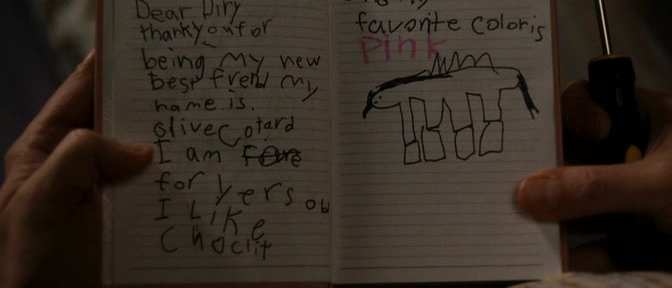 Dear Diry
thankyou for
being my new
best frend my
name is.
olive Cotard
I am
for yers ob
I Like
Choclit
favorite Coloris
Pink